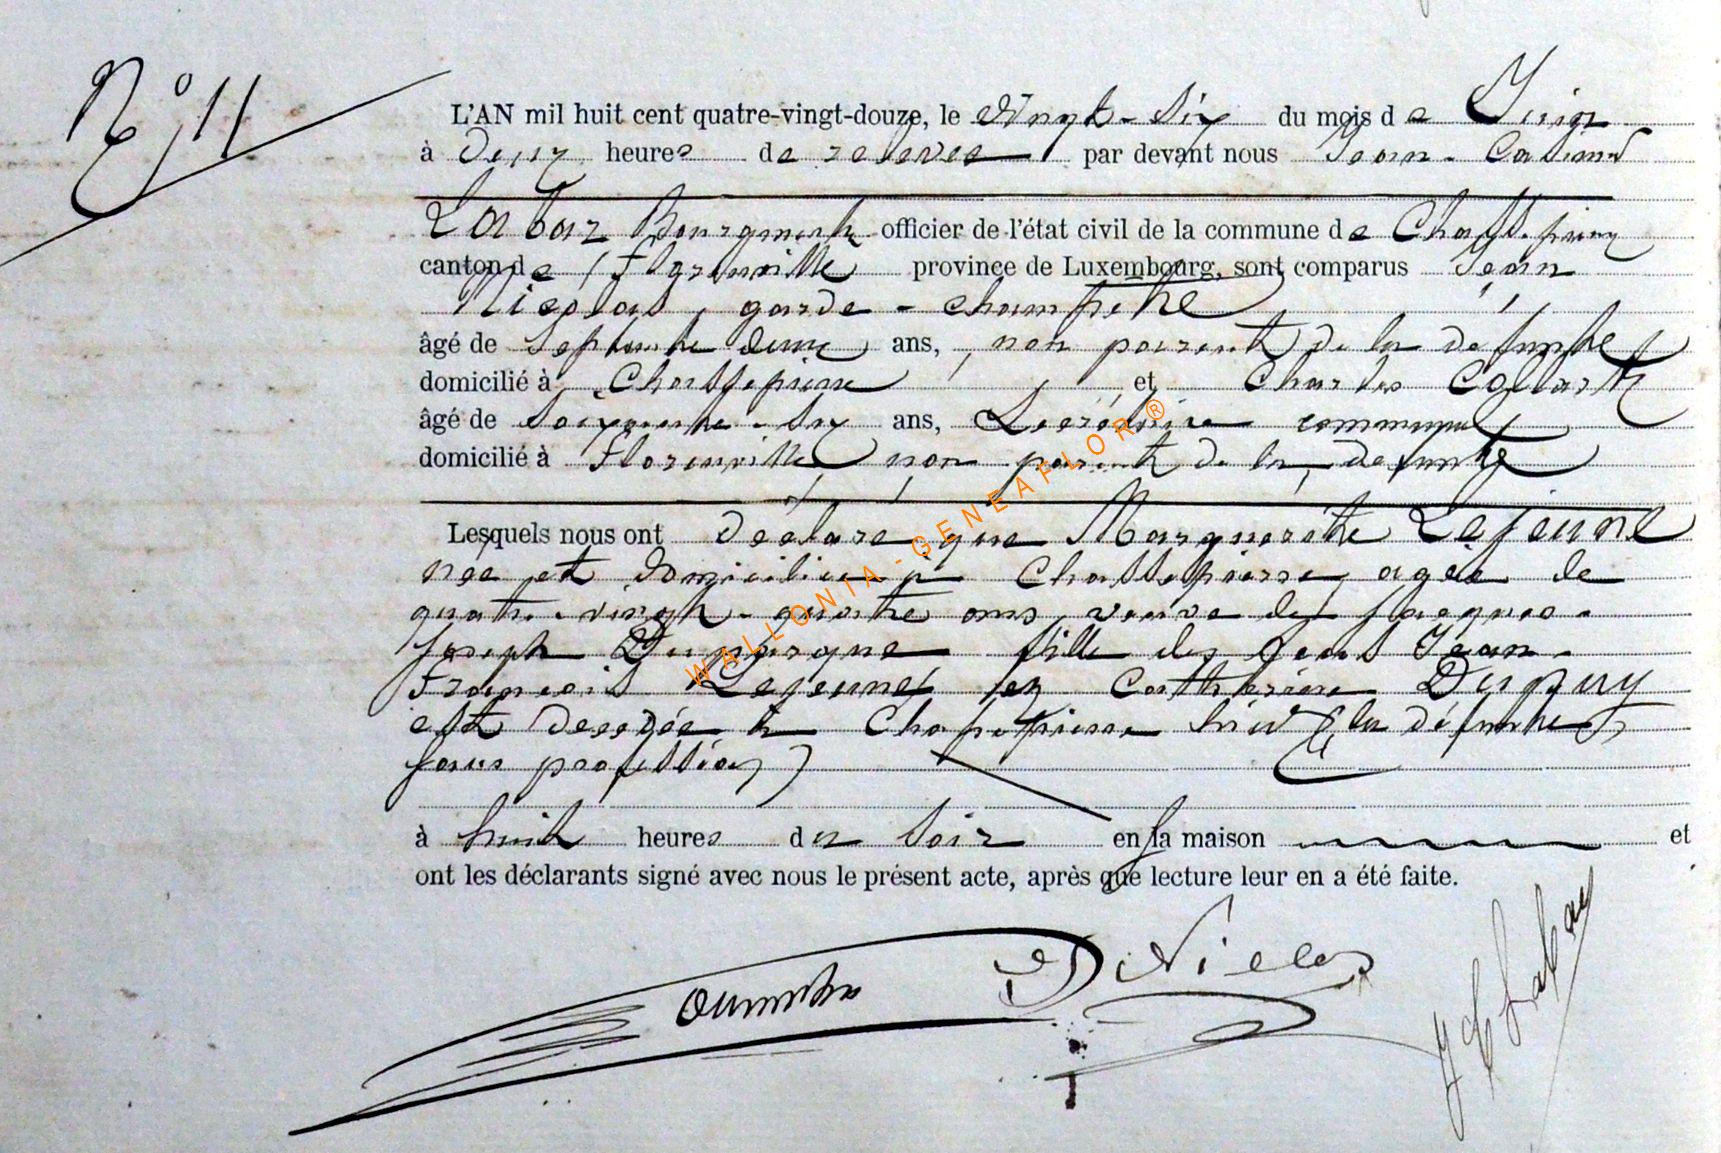 N° 11
L'AN mil huit cent quatre-vingt-douze, le vingt-six du mois de Juin
à deux heures de relevée par devant nous Jean-Casimir
Labar Bourgmestre officier de l'état civil de la commune de Chassepierre
canton de Florenville province de Luxembourg, sont comparus Jean
Nicolas garde-champêtre
âgé de septante deux ans, non parent de la défunte
domicilié à Chassepierre et Charles Collart
âgé de soixante-six ans, Secrétaire communal
domicilié à Florenville non parent de la défunte
Lesquels nous ont déclaré que Marguerite Lejeune
née et domiciliée à Chassepierre, agée de
quatre-vingt-quatre ans, veuve de Jacques-
Joseph fille des feus Jean-
François Lejeune et Catherine Dupuy
est decedée à Chassepierre hier (la défunte
sans profession)
à huit heures du soir en sa maison et
ont les déclarants signé avec nous le présent acte, après que lecture leur en a été faite.
Nicolas
J C Labar
WALLONIA-GENEAFLOR®